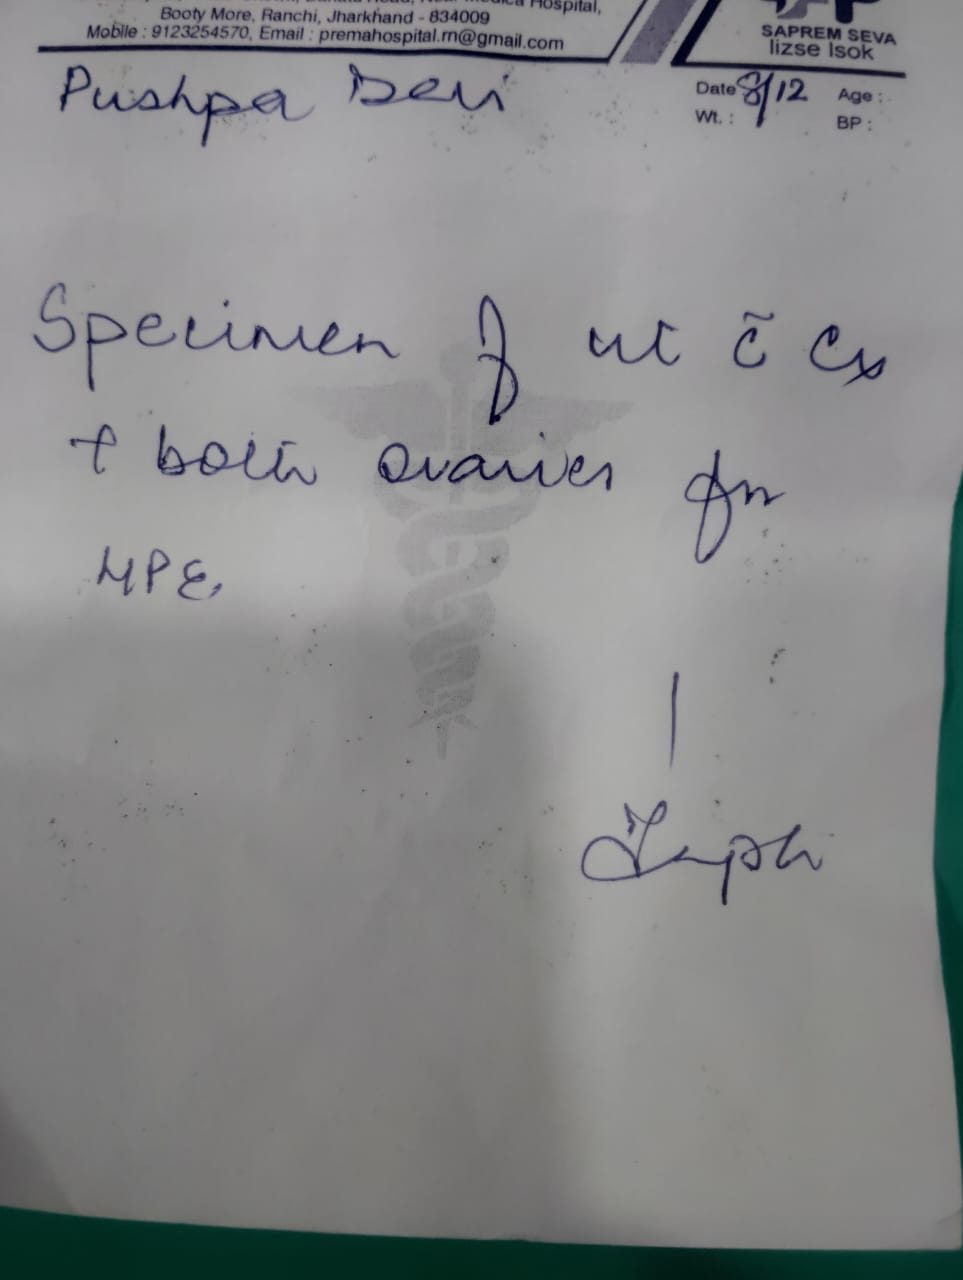 Hospital,
Booty More, Ranchi, Jharkhand - 834009
Mobile : 9123254570, Email : premahospital.rn@gmail.com
SAPREM SEVA
lizse lsok
Pushpa Devi
Date 8/12 Age :
Wt. : BP :
Specimen of ut c̄ Cx
+ both ovaries for
HPE